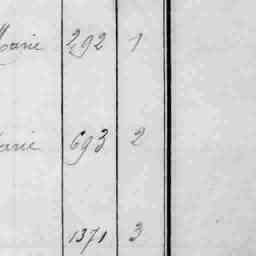 Marie 292 1
arie 693 2
1371 3